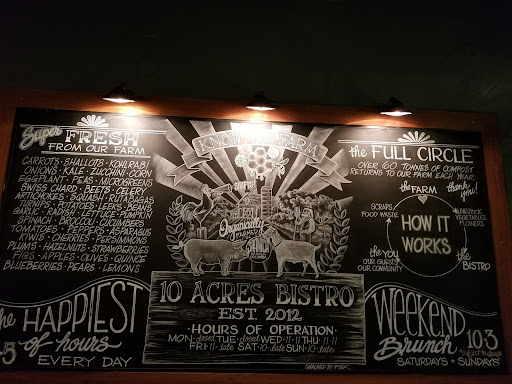 Super FRESH
FROM OUR FARM
CARROTS · SHALLOTS · KOHLRABI
ONIONS · KALE · ZUCCHINI · CORN
EGGPLANT · PEAS · MICROGREENS
SWISS CHARD · BEETS · CELERY
ARTICHOKES · SQUASH · RUTABAGAS
TURNIPS · BEANS · LEEKS · BEANS
GARLIC · RADISH · LETTUCE · PUMPKIN
SPINACH · BROCCOLI · CUCUMBERS
TOMATOES · PEPPERS · ASPARAGUS
KIWIS · CHERRIES · PERSIMMONS
PLUMS · HAZELNUTS · STRAWBERRIES
FIGS · APPLES · OLIVES · QUINCE
BLUEBERRIES · PEARS · LEMONS
the HAPPIEST
of hours
EVERY DAY
KNOW FARM
Organically
FARMED
10 ACRES BISTRO
EST. 2012
· HOURS OF OPERATION ·
MON · closed TUE · closed WED · 11-11 THU · 11-11
FRI · 11-late SAT · 10-late SUN · 10-late
the FULL CIRCLE
OVER 60 TONNES OF COMPOST
RETURNS TO OUR FARM EACH YEAR
the FARM
thank you!
SCRAPS
FOOD WASTE
HOW IT
WORKS
VEGETABLES
FLOWERS
the YOU
OUR GUESTS
OUR COMMUNITY
the BISTRO
WEEKEND
Brunch 10-3
SATURDAYS + SUNDAYS